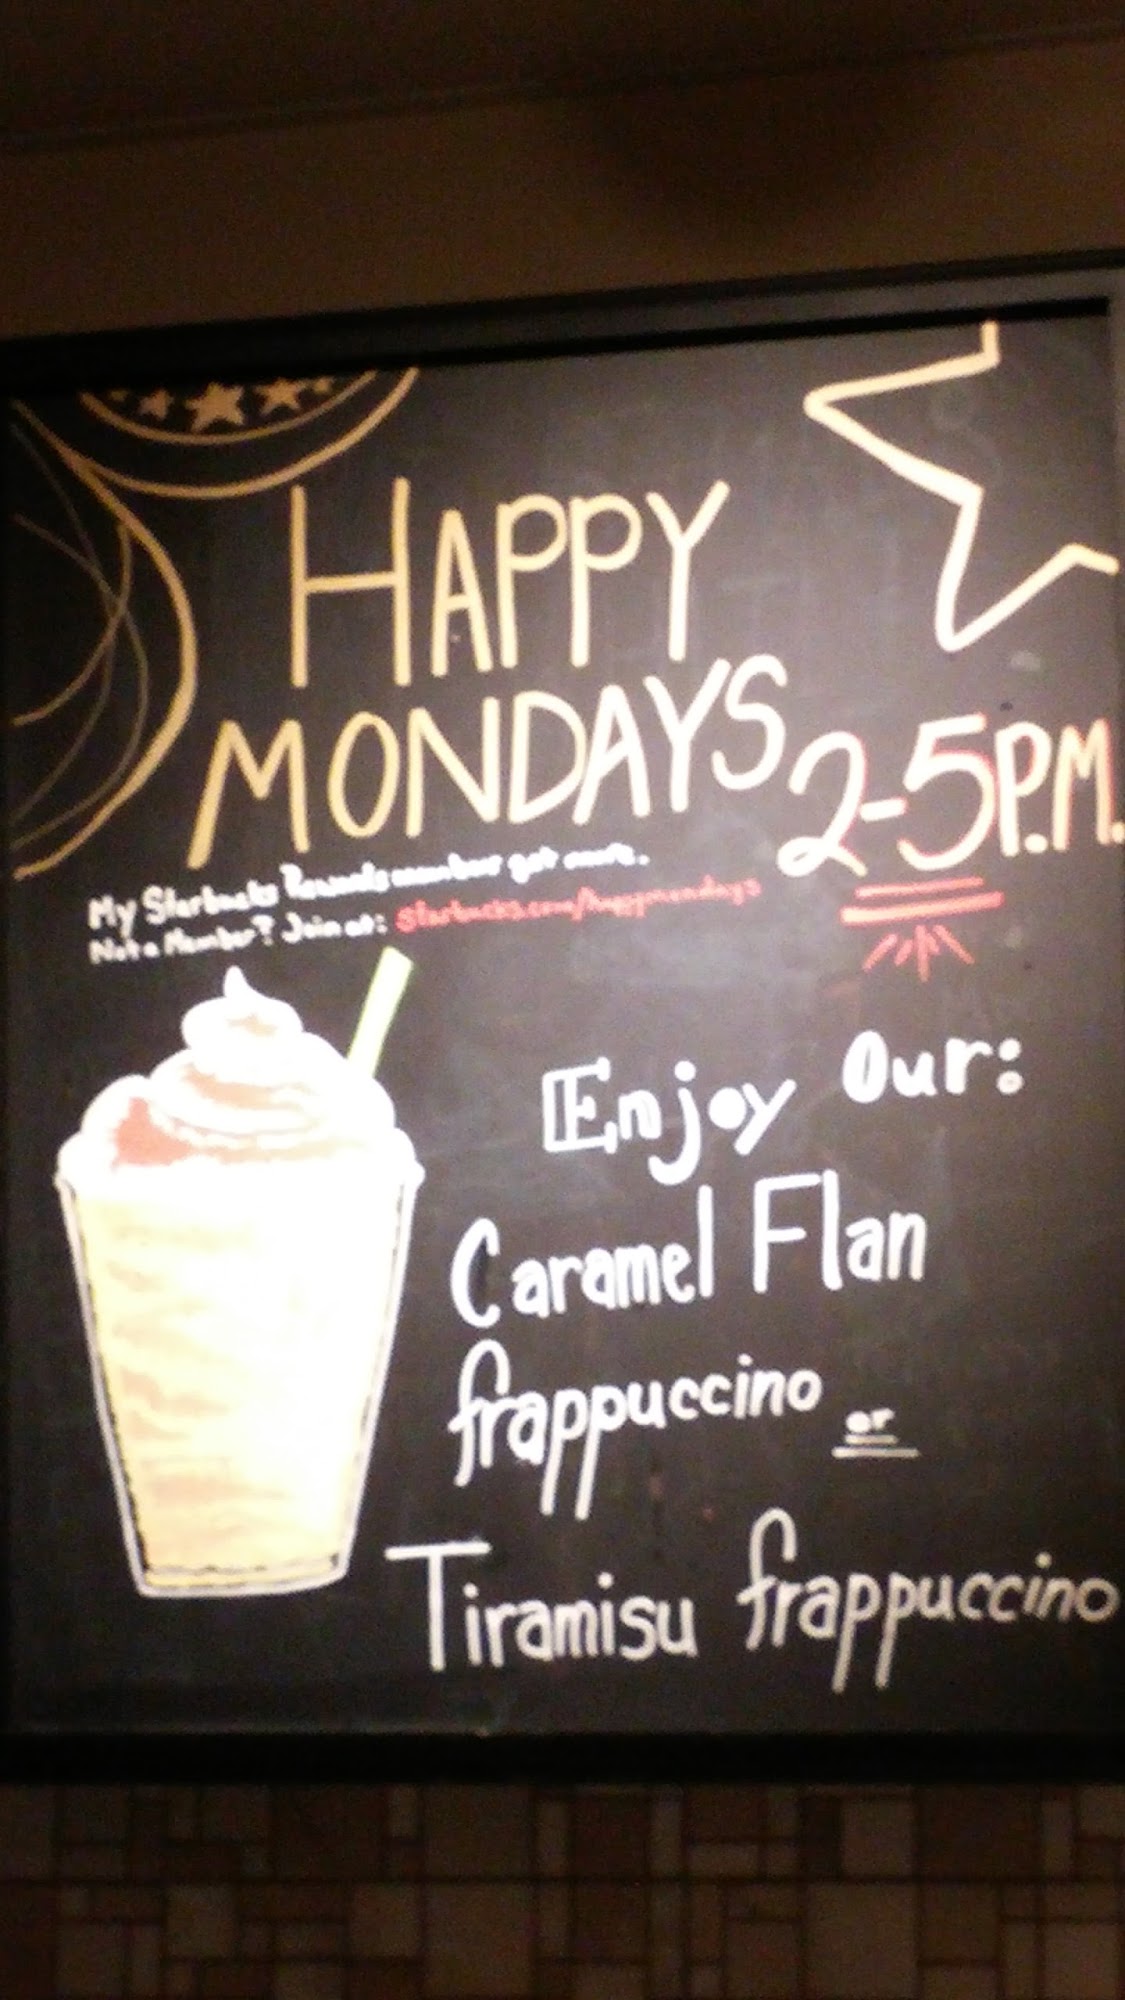 HAPPY
MONDAYS 2-5P.M.
My Starbucks Rewards member get more.
Not a Member? Join at: starbucks.com/happymondays
Enjoy Our:
Caramel Flan
frappuccino or
Tiramisu frappuccino